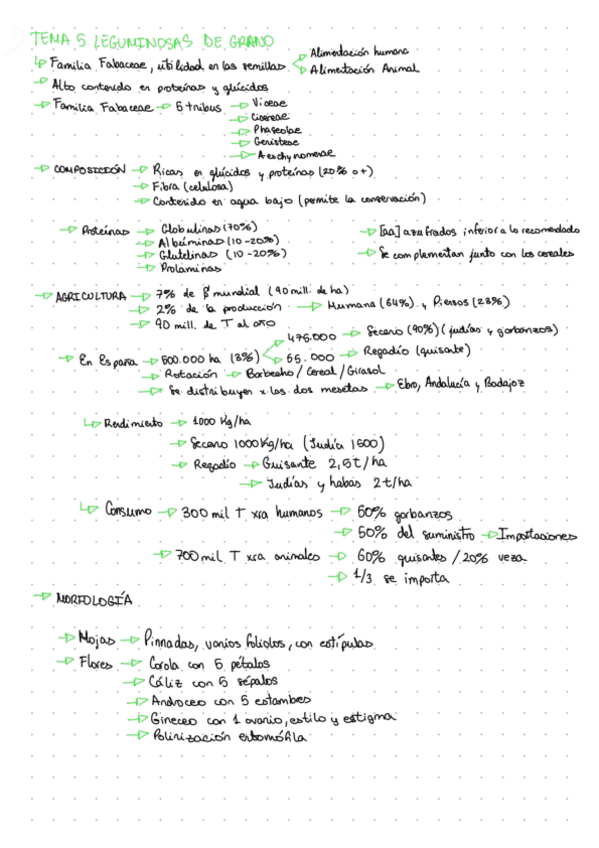 TEMA 5. LEGUMINOSAS DE GRANO
Familia Fabaceae, utilidad en las semillas
Alimentación humana
Alimentación Animal
Alto contenido en proteínas y glúcidos
Familia Fabaceae 5 tribus Viceae
Cicereae
Phaseolae
Genisteae
Aeschynomenae
COMPOSICIÓN Ricas en glúcidos y proteínas (20% o +)
Fibra (celulosa)
Contenido en agua bajo (permite la conservación)
Proteínas Globulinas (70%) [aa] azufrados inferior a lo recomendado
Albúminas (10-20%)
Glutelinas (10-20%) Se complementan junto con los cereales
Prolaminas
AGRICULTURA 7% de mundial (90 mill. de ha)
2% de la producción Humana (64%) y Piensos (23%)
90 mill. de T al año
475.000 Secano (90%) (judías y garbanzos)
En España 500.000 ha (3%)
55.000 Regadío (guisante)
Rotación Barbecho / Cereal / Girasol
Se distribuyen x las dos mesetas Ebro, Andalucía y Badajoz
Rendimiento 1000 Kg/ha
Secano 1000 Kg/ha (Judía 1500)
Regadío Guisante 2,5t/ha
Judías y habas 2t/ha
Consumo 300 mil T xra humanos 50% garbanzos
50% del suministro Importaciones
700 mil T xra animales 60% guisantes / 20% veza
1/3 se importa
MORFOLOGÍA
Hojas Pinnadas, varios foliolos, con estípulas
Flores Corola con 5 pétalos
Cáliz con 5 sépalos
Androceo con 5 estambres
Gineceo con 1 ovario, estilo y estigma
Polinización entomófila